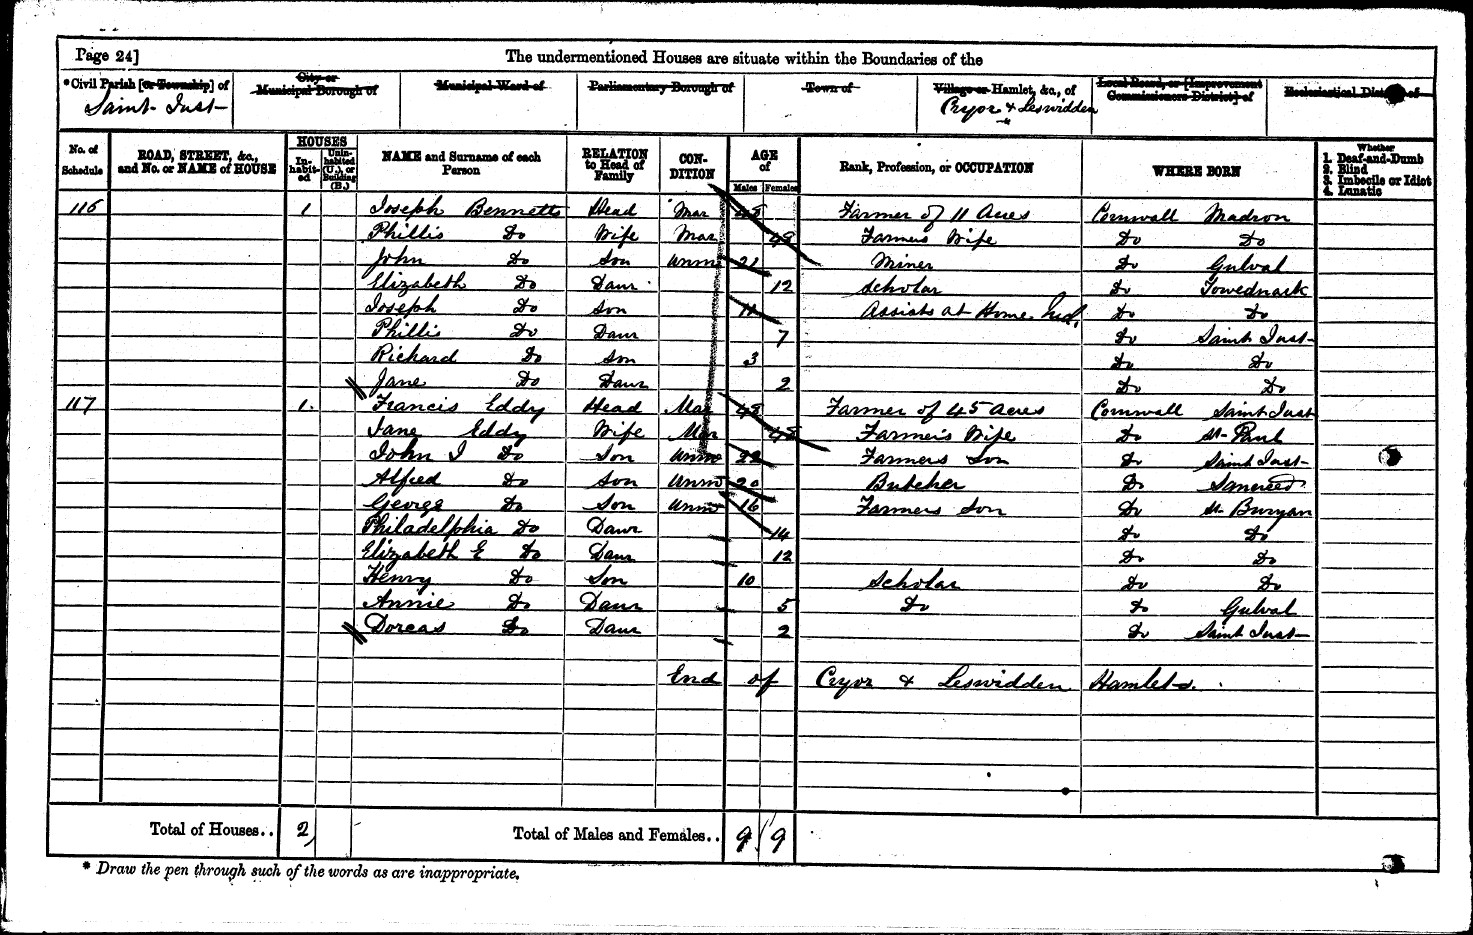 Page 24]
The undermentioned Houses are situate within the Boundaries of the
*Civil Parish [or Township] of
City or Municipal Borough of
Municipal Ward of
Parliamentary Borough of
Town of
Village or Hamlet, &c., of
Local Board, or [Improvement Commissioners District] of
Ecclesiastical District of
Saint Just
Cryor & Leswidden
No. of Schedule
ROAD, STREET, &c., and No. or NAME of HOUSE
HOUSES
In-habit-ed
Unin-habited (U.), or Building (B.)
NAME and Surname of each Person
RELATION to Head of Family
CON-DITION
AGE of
Males
Females
Rank, Profession, or OCCUPATION
WHERE BORN
Whether
1. Deaf-and-Dumb
2. Blind
3. Imbecile or Idiot
4. Lunatic
116 1 Joseph Bennetts Head Mar 48 Farmer of 11 Acres Cornwall Madron
Phillis Do Wife Mar 48 Farmers Wife Do Do
John Do Son Unm 21 Miner Do Gulval
Elizabeth Do Daur 12 Scholar Do Towednack
Joseph Do Son 11 Assists at Home Do Do
Phillis Do Daur 7 Do Saint Just
Richard Do Son 3 Do Do
Jane Do Daur 2 Do Do
117 1 Francis Eddy Head Mar 48 Farmer of 45 Acres Cornwall Saint Just
Jane Eddy Wife Mar 48 Farmer's Wife Do St Paul
John J Do Son Unm 22 Farmers Son Do Saint Just
Alfred Do Son Unm 20 Butcher Do Sancreed
George Do Son Unm 16 Farmers Son Do St Buryan
Philadelphia Do Daur 14 Do Do
Elizabeth E Do Daur 12 Do Do
Henry Do Son 10 Scholar Do Do
Annie Do Daur 5 Do Do Gulval
Dorcas Do Daur 2 Do Saint Just
End of Cryor & Leswidden Hamlets.
Total of Houses.. 2
Total of Males and Females.. 9 9
* Draw the pen through such of the words as are inappropriate.